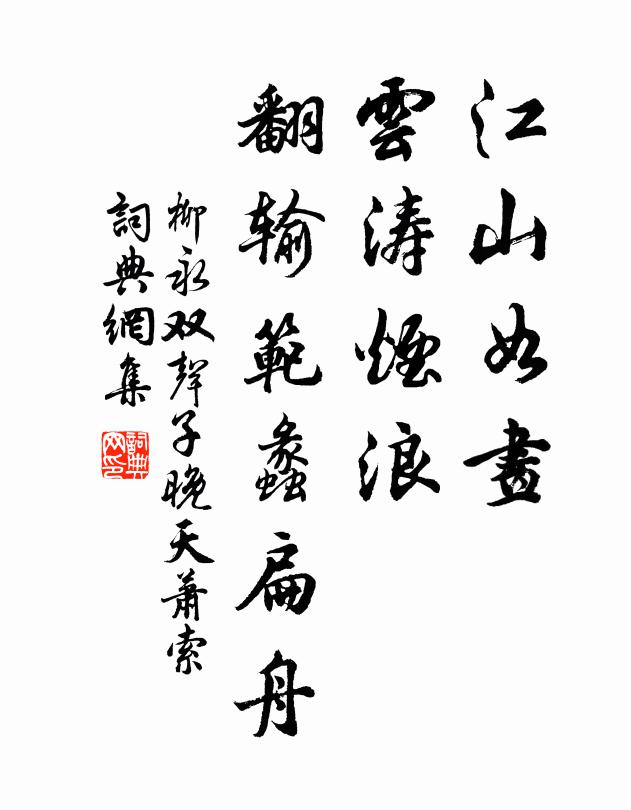 江山如畫
雲涛煙浪
翻输範蠡扁舟
柳永双聲子晚天萧索
詞典網集
詞典
网印